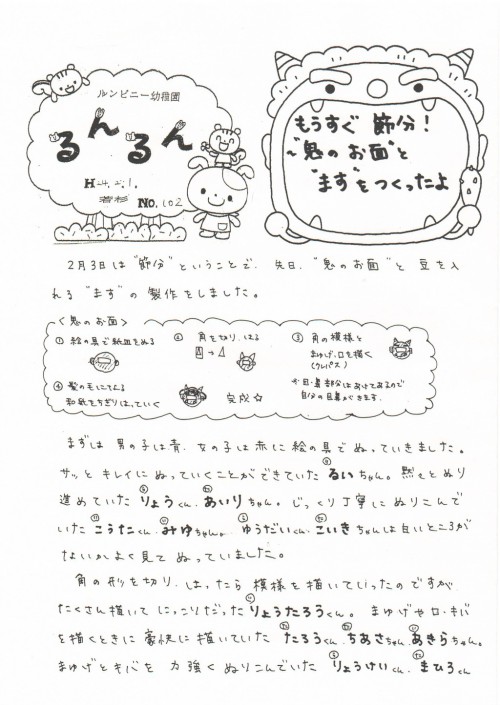 ルンビニー幼稚園
るんるん
H24.2.1.
若杉 No.102
もうすぐ 節分!
"鬼のお面"と
"ます"をつくったよ
2月3日は"節分"ということで、先日、"鬼のお面"と 豆を入
れる"ます"の製作をしました。
<鬼のお面>
① 絵の具で紙皿をぬる
② 角を切り、はる
③ 角の模様と
まゆげ、口を描く
(クレパス)
④ 髪の毛にみたてる
和紙をちぎりはっていく
完成☆
※目・鼻部分はあけてあるので
自分の目鼻がでます。
まずは 男の子は青、女の子は赤に絵の具でぬっていきました。
サッと キレイに ぬっていくことができていた るいちゃん。黙々とぬり
進めていた りょうくん、あいりちゃん。じっくり丁寧に ぬりこんで
いた こうたくん、みゆちゃん。ゆうだいくん、こいきちゃんは白いところが
ないかよく見て ぬっていました。
角の形を切り、はったら 模様を描いていったのですが、
たくさん描いて にっこりだった りょうたろうくん。まゆげや口・キバ
を描くときに 豪快に描いていた たろうくん、ちあさちゃん、あきらちゃん。
まゆげとキバを 力強く ぬりこんでいた りょうけいくん、まひろくん